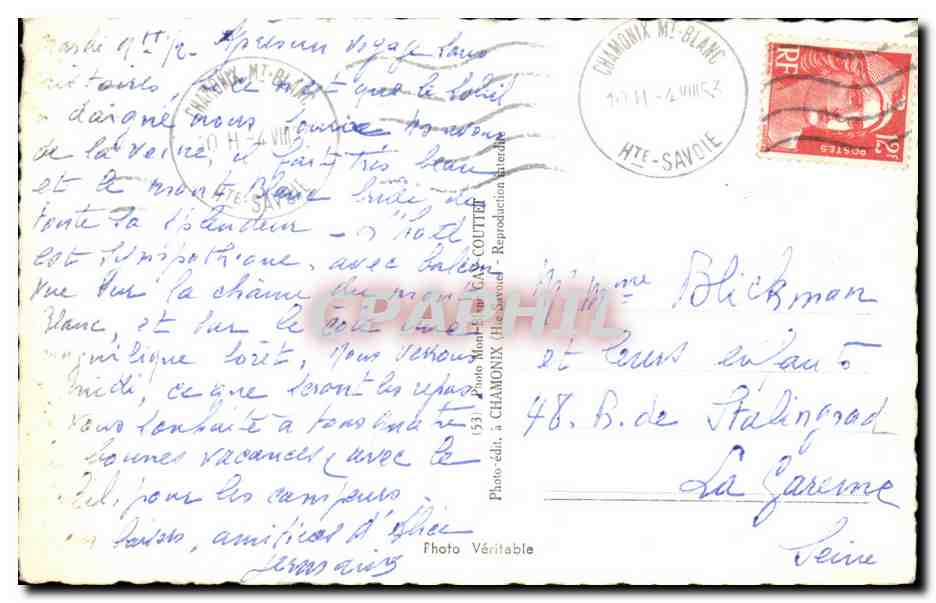 Après un voyage sans
que le soleil
daigne nous sourire nous avons
de la veine, il fait très beau
et le Mont Blanc brille de
toute sa splendeur - L'hotel
est sympathique, avec balcon
vue sur la chaine du mont
Blanc, et sur le côté une
magnifique forêt, Nous verrons
midi, ce que seront les repas
Vous souhaite à tous quatre
bonnes vacances, avec le
pour les campeurs.
baisers, amitiés d'Alice
Germaine
CHAMONIX MT-BLANC
10 H -4 VIII
HTE-SAVOIE
CHAMONIX MT-BLANC
10 H -4 VIII 53
HTE-SAVOIE
RF
12F
POSTES
(53) Photo Mont-Blanc GAY-COUTTET
Photo-édit. à CHAMONIX (Hte-Savoie) - Reproduction interdite
CPAPHIL
M Mme Blickman
et leurs enfants
48. R. de Stalingrad
La Garenne
Seine
Photo Véritable